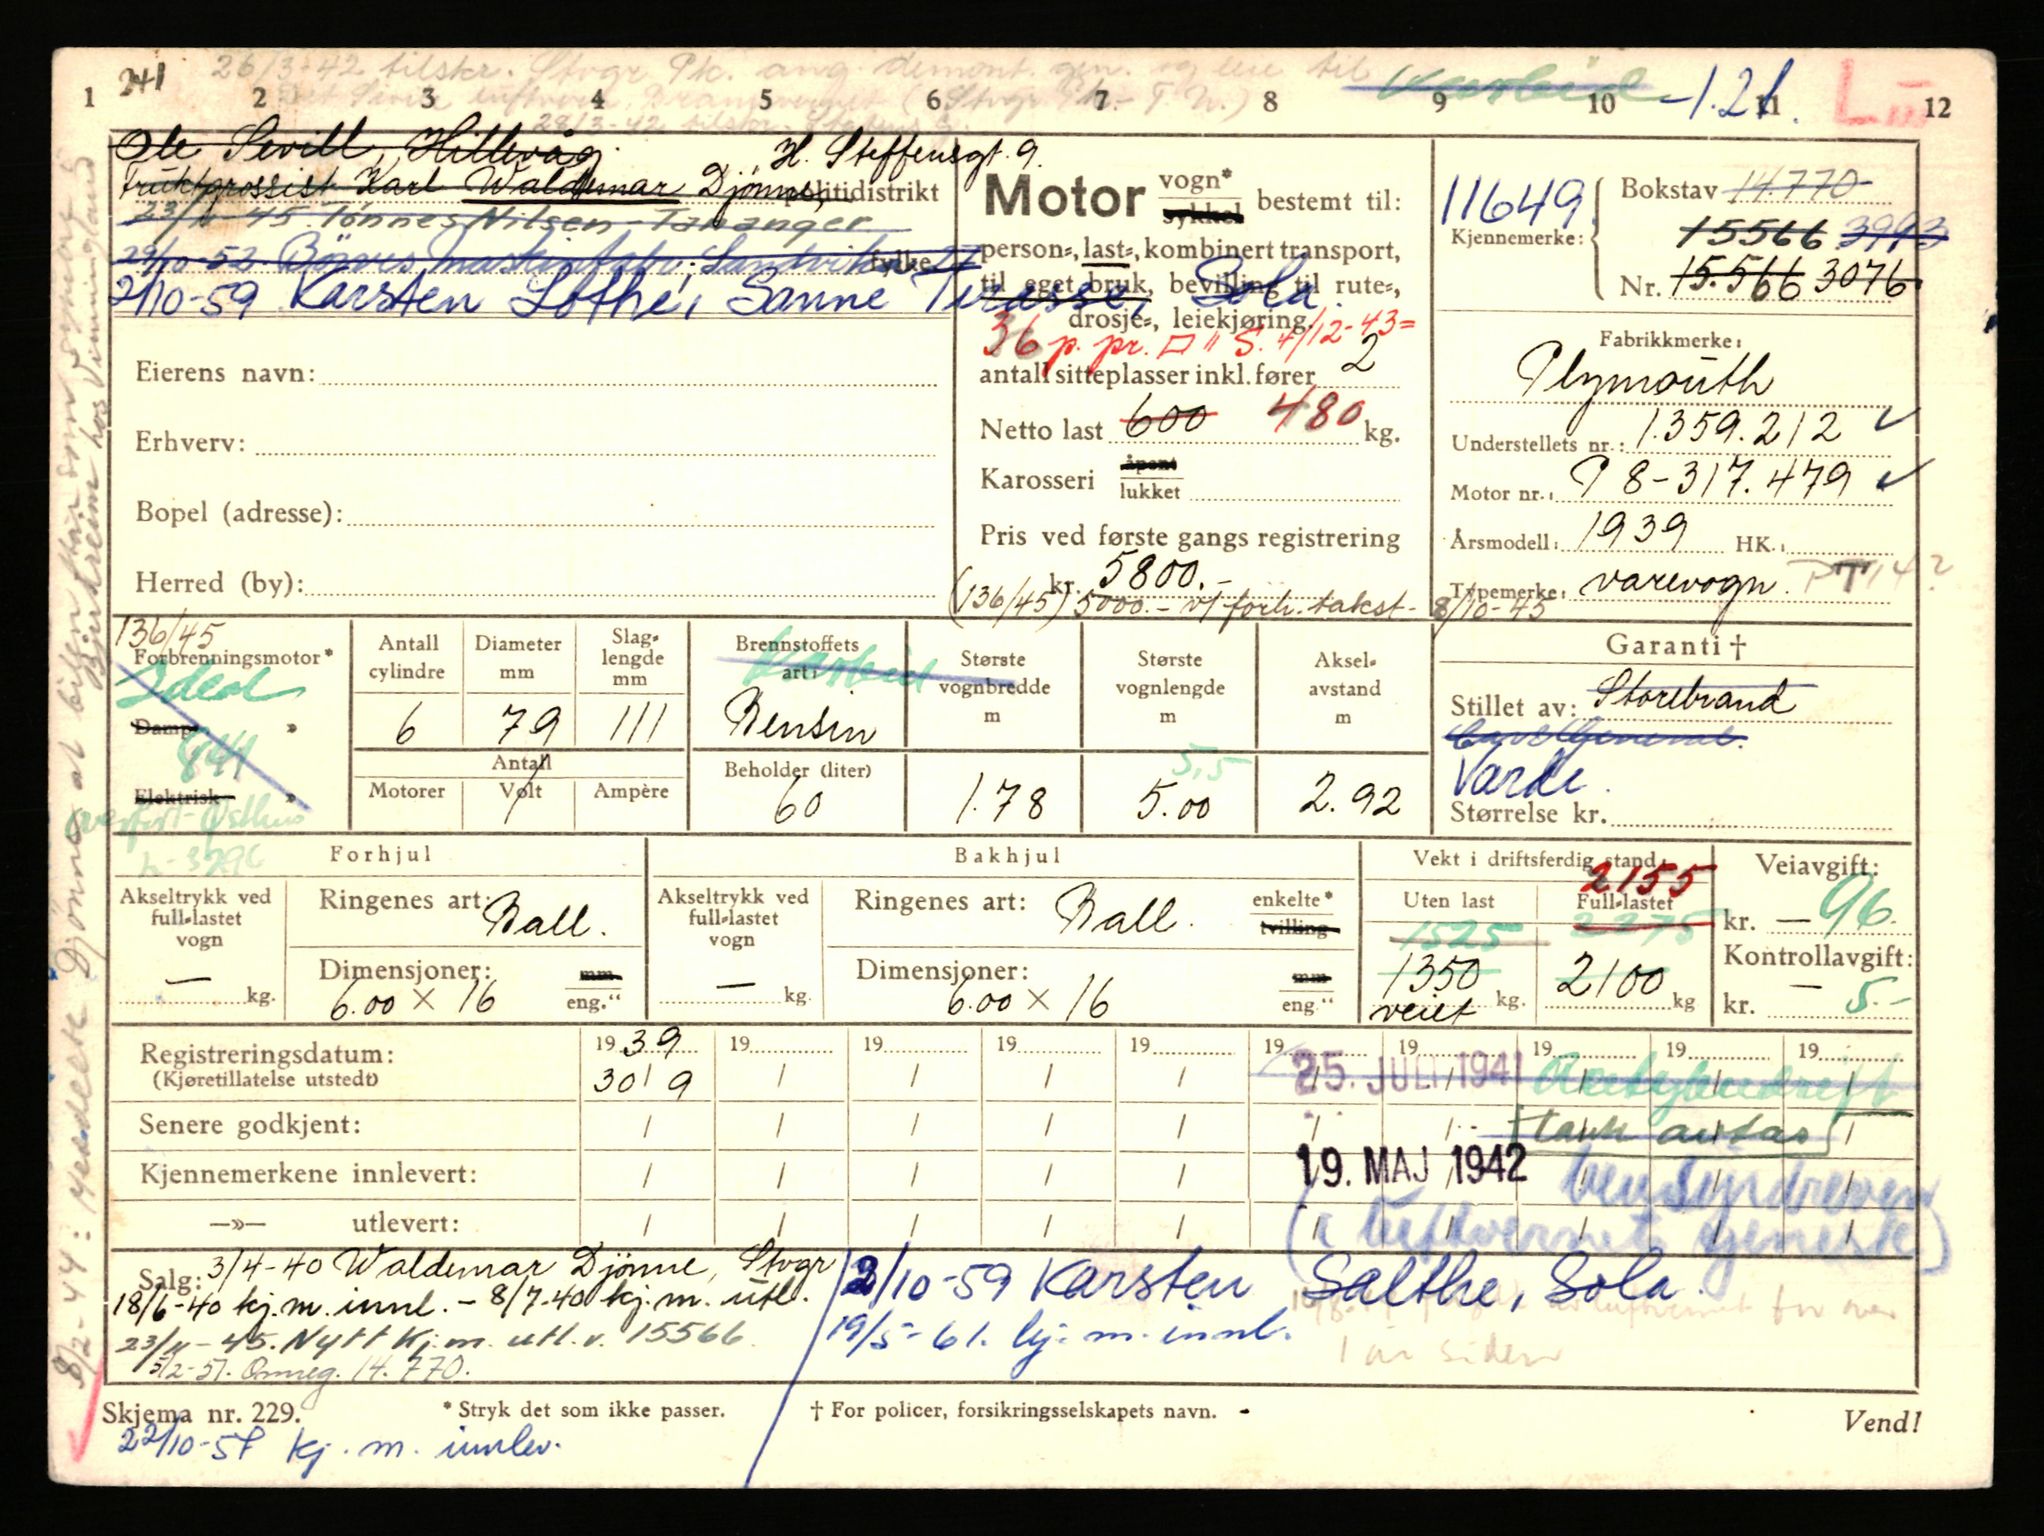 241 26/3-42 tilskr. Stvgr Pk. ang demont. gen. og leie til
1 2 3 4 5 6 7 8 9 10 11 12
-1.21.
28/3-42 tilskr.
Ole Sevill, Hillevåg. H. Steffensgt. 9.
Fruktgrossist Karl Waldemar Djønne, politidistrikt
23/11-45 Tønnes Nilsen Tananger
29/10-52 Sandvik fylke
2/10-59 Karsten Lothe, Sanne Terasse, Sola.
Eierens navn:
Erhverv:
Bopel (adresse):
Herred (by):
Motor vogn* sykkel bestemt til:
person-, last-, kombinert transport,
til eget bruk, bevilling til rute-,
drosje-, leiekjøring.
36 p. pr. □ " S. 4/12-43=
antall sitteplasser inkl. fører 2
Netto last 600 480 kg.
Karosseri åpent lukket
Pris ved første gangs registrering
kr. 5800.-
(136/45) 5000.- v/ forh. takst- 8/10-45
11649 Bokstav 14.770
15566 3993
Kjennemerke:
Nr. 15.566 3076
Fabrikkmerke:
Plymouth
Understellets nr.: 1.359.212
Motor nr.: P 8-317.479
Årsmodell: 1939 HK.:
Typemerke: varevogn. PT 14?
136/45
Forbrenningsmotor*
Ideal
Damp- »
841
Elektrisk »
Antall cylindre
6
Diameter mm
79
Slag-lengde mm
111
Antall
Motorer Volt Ampère
Brennstoffets art:
Karbid
Bensin
Beholder (liter)
60
Største vognbredde m
1.78
Største vognlengde m
5,5
5.00
Aksel-avstand m
2.92
Garanti †
Stillet av: Storebrand
Varde.
Størrelse kr.
Forhjul
Akseltrykk ved full-lastet vogn
— kg.
Ringenes art: Ball.
Dimensjoner: mm
6.00 × 16 eng."
Bakhjul
Akseltrykk ved full-lastet vogn
— kg.
Ringenes art: Ball. enkelte* tvilling
Dimensjoner: mm
6.00 × 16 eng."
Vekt i driftsferdig stand:
2155
Uten last Full-lastet
1525 2275
1350 kg. 2100 kg
veiet
Veiavgift:
kr. — 96.
Kontrollavgift:
kr. — 5.-
Registreringsdatum: 1939 19 19 19 19 19 19 19 19 19
(Kjøretillatelse utstedt) 30/9 25. JULI 1941
Senere godkjent: tank
Kjennemerkene innlevert: 19. MAJ 1942 bensindreven
—»— utlevert: (i luftvernets tjeneste)
Salg: 3/4-40 Waldemar Djønne, Stvgr
18/6-40 kj.m. innl. - 8/7-40 kj.m. utl.
23/11-45. Nytt kj.m. utl. v. 15566
5/2-51. Omreg. 14.770.
2/10-59 Karsten Salthe, Sola.
19/5-61. kj. m. innl.
1 år siden
Skjema nr. 229. * Stryk det som ikke passer. † For policer, forsikringsselskapets navn. Vend!
22/10-58 kj. m. innlev.
8/2-44: Meddelte Djønne at bilen står som
Bjerkreim hos